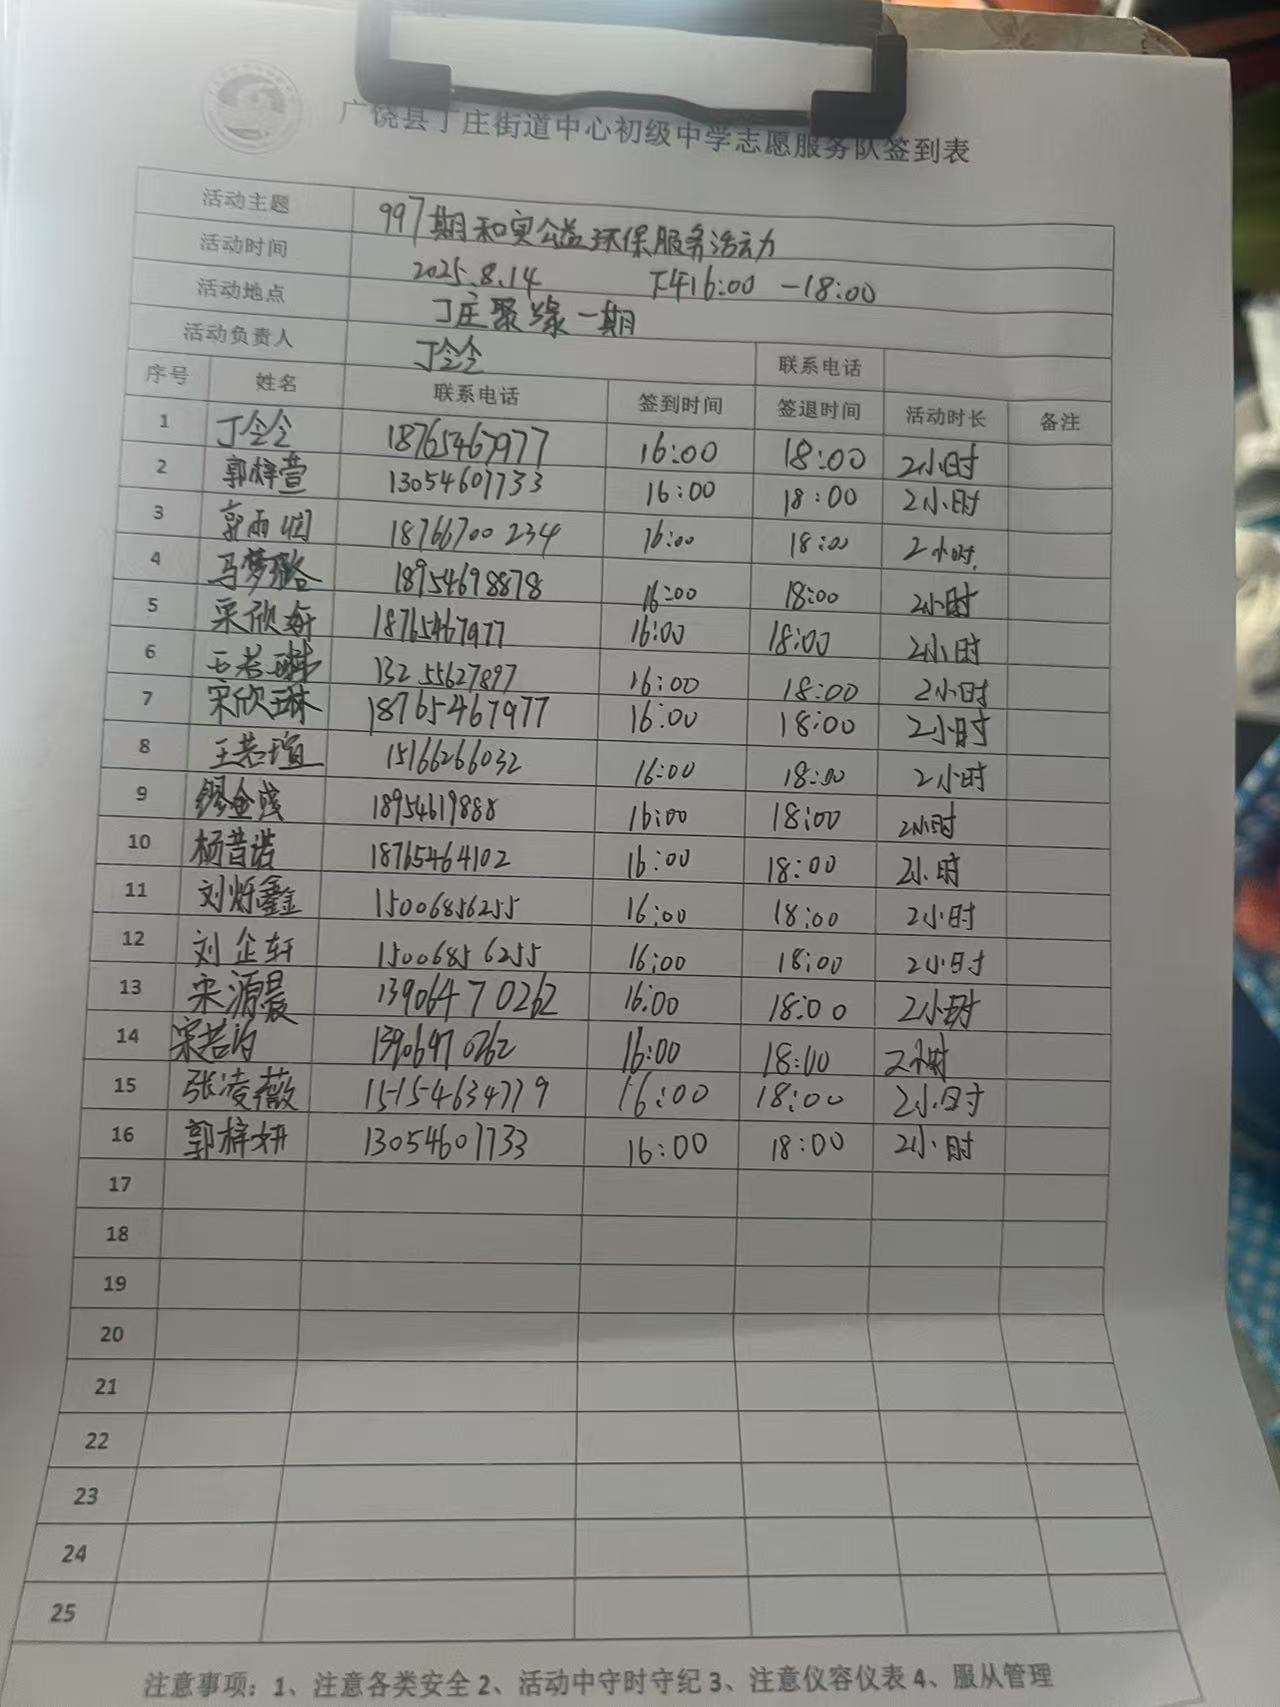 广饶县丁庄街道中心初级中学志愿服务队签到表
活动主题 997期和实公益环保服务活动
活动时间 2025.8.14 下午16:00 -18:00
活动地点 丁庄聚缘一期
活动负责人 丁令令 联系电话
序号 姓名 联系电话 签到时间 签退时间 活动时长 备注
1 丁令令 18765467977 16:00 18:00 2小时
2 郭梓萱 13054607733 16:00 18:00 2小时
3 郭雨润 18766700234 16:00 18:00 2小时
4 马梦璐 18954698878 16:00 18:00 2小时
5 宋欣妍 18765467977 16:00 18:00 2小时
6 王若琳 13255627897 16:00 18:00 2小时
7 宋欣琳 18765467977 16:00 18:00 2小时
8 王若瑄 15166266032 16:00 18:00 2小时
9 18954619888 16:00 18:00 2小时
10 杨昔诺 18765464102 16:00 18:00 2小时
11 刘烁鑫 15006856255 16:00 18:00 2小时
12 刘企轩 15006856255 16:00 18:00 2小时
13 宋源晨 13906470262 16:00 18:00 2小时
14 宋若汐 13906470262 16:00 18:00 2小时
15 张凌薇 15154634779 16:00 18:00 2小时
16 郭梓妍 13054607733 16:00 18:00 2小时
17
18
19
20
21
22
23
24
25
注意事项：1、注意各类安全 2、活动中守时守纪 3、注意仪容仪表 4、服从管理